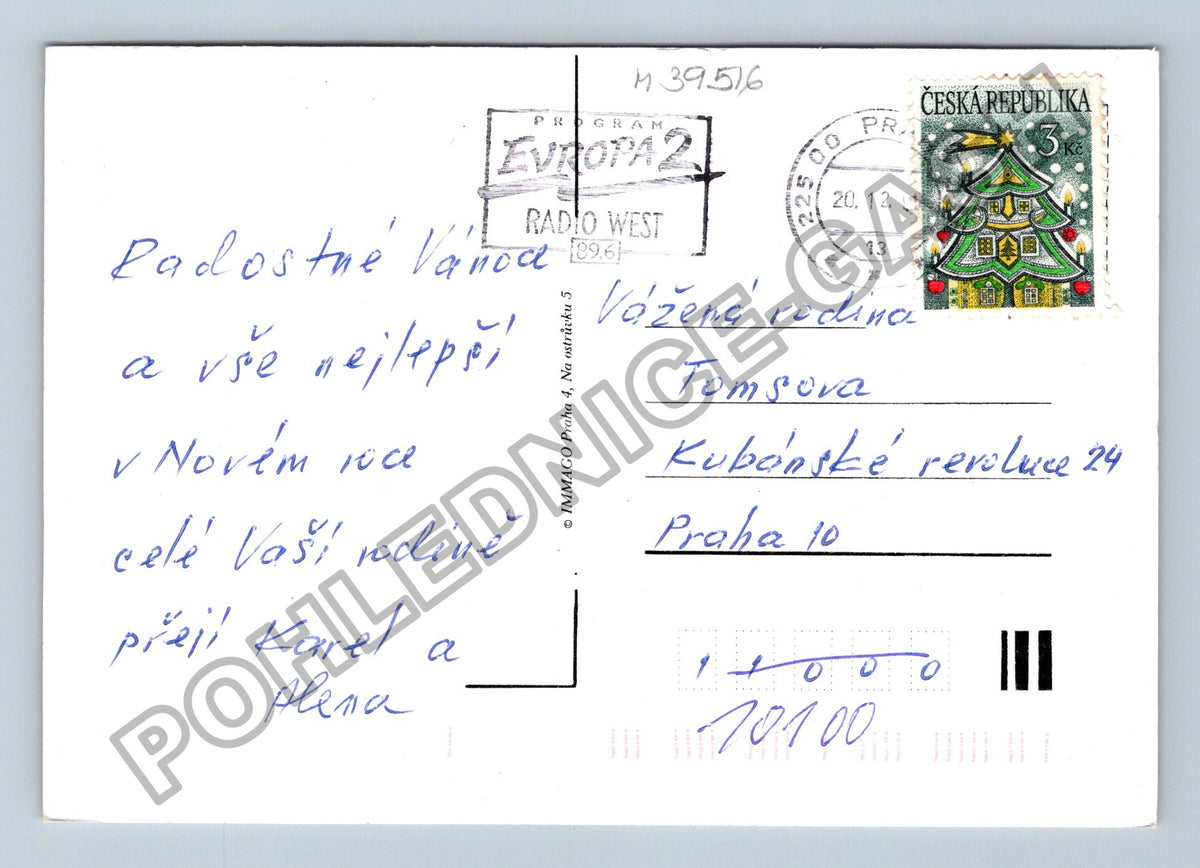 M 395/6
PROGRAM
EVROPA 2
RADIO WEST
89.6
225 00 PRA
20.12.
13
ČESKÁ REPUBLIKA
3 Kč
Radostné Vánoce
a vše nejlepší
v Novém roce
celé Vaší rodině
přejí Karel a
Alena
© IMMAGO Praha 4, Na ostrůvku 5
Vážená rodina
Tomsova
Kubánské revoluce 24
Praha 10
11000
10100
POHLEDNICE-GA